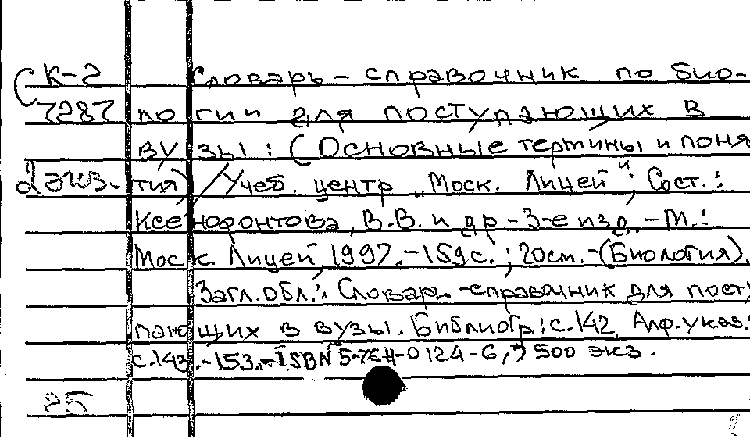 К-2 Словарь-справочник по био-
7287 логии для поступающих в
вузы: (Основные термины и поня
2 экз. тия) / Учеб. центр „Моск. Лицей"; Сост.:
Ксенофонтова, В.В. и др - 3-е изд. - М.:
Моск. Лицей, 1997. - 159 с.; 20см. - (Биология).
Загл. обл.: Словарь-справочник для пост
пающих в вузы. Библиогр: с.142. Алф. указ.:
с.143-153. - ISBN 5-7611-0124-6, 7500 экз.